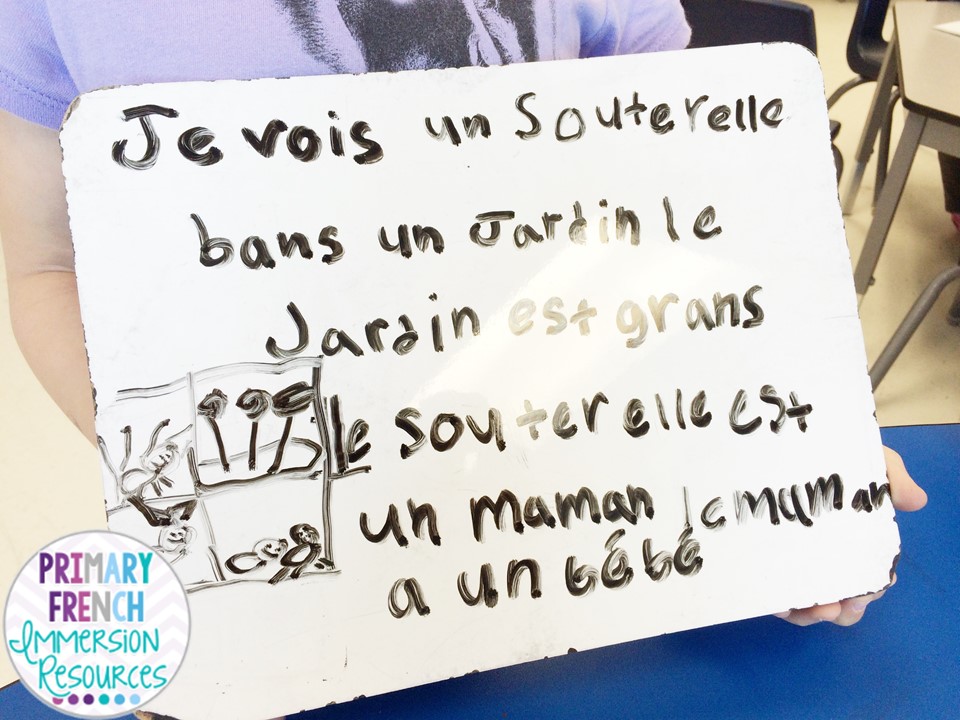 Je vois un Souterelle
bans un Jardin le
Jardin est grans
le souterelle est
un maman le maman
a un bébé
PRIMARY
FRENCH
IMMERSION
RESOURCES